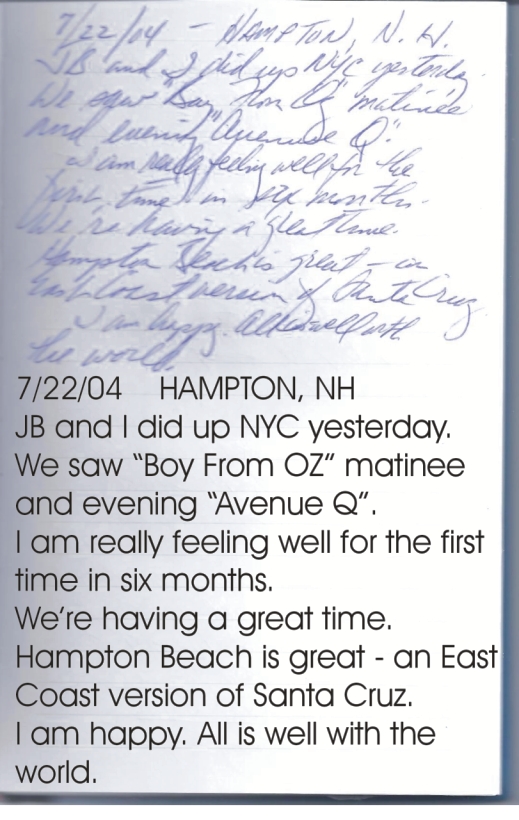 7/22/04 – HAMPTON, N. H.
JB and I did up NYC yesterday.
We saw "Boy From Oz" matinee
and evening "Avenue Q".
I am really feeling well for the
first time in six months.
We're having a great time.
Hampton Beach is great – an
East Coast version of Santa Cruz
I am happy. All is well with
the world.
7/22/04 HAMPTON, NH
JB and I did up NYC yesterday.
We saw “Boy From OZ” matinee
and evening “Avenue Q”.
I am really feeling well for the first
time in six months.
We're having a great time.
Hampton Beach is great - an East
Coast version of Santa Cruz.
I am happy. All is well with the
world.